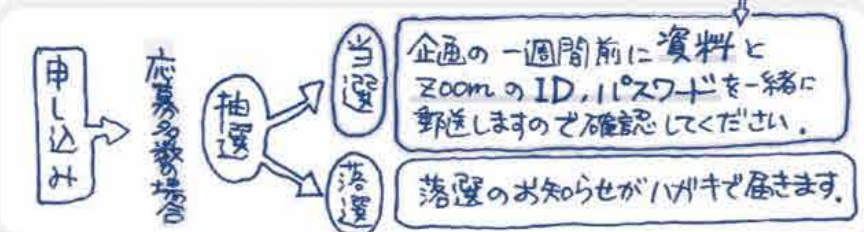 申し込み
応募多数の場合
抽選
当選
企画の一週間前に資料と
ZoomのID,パスワードを一緒に
郵送しますので確認してください.
落選
落選のお知らせがハガキで届きます.